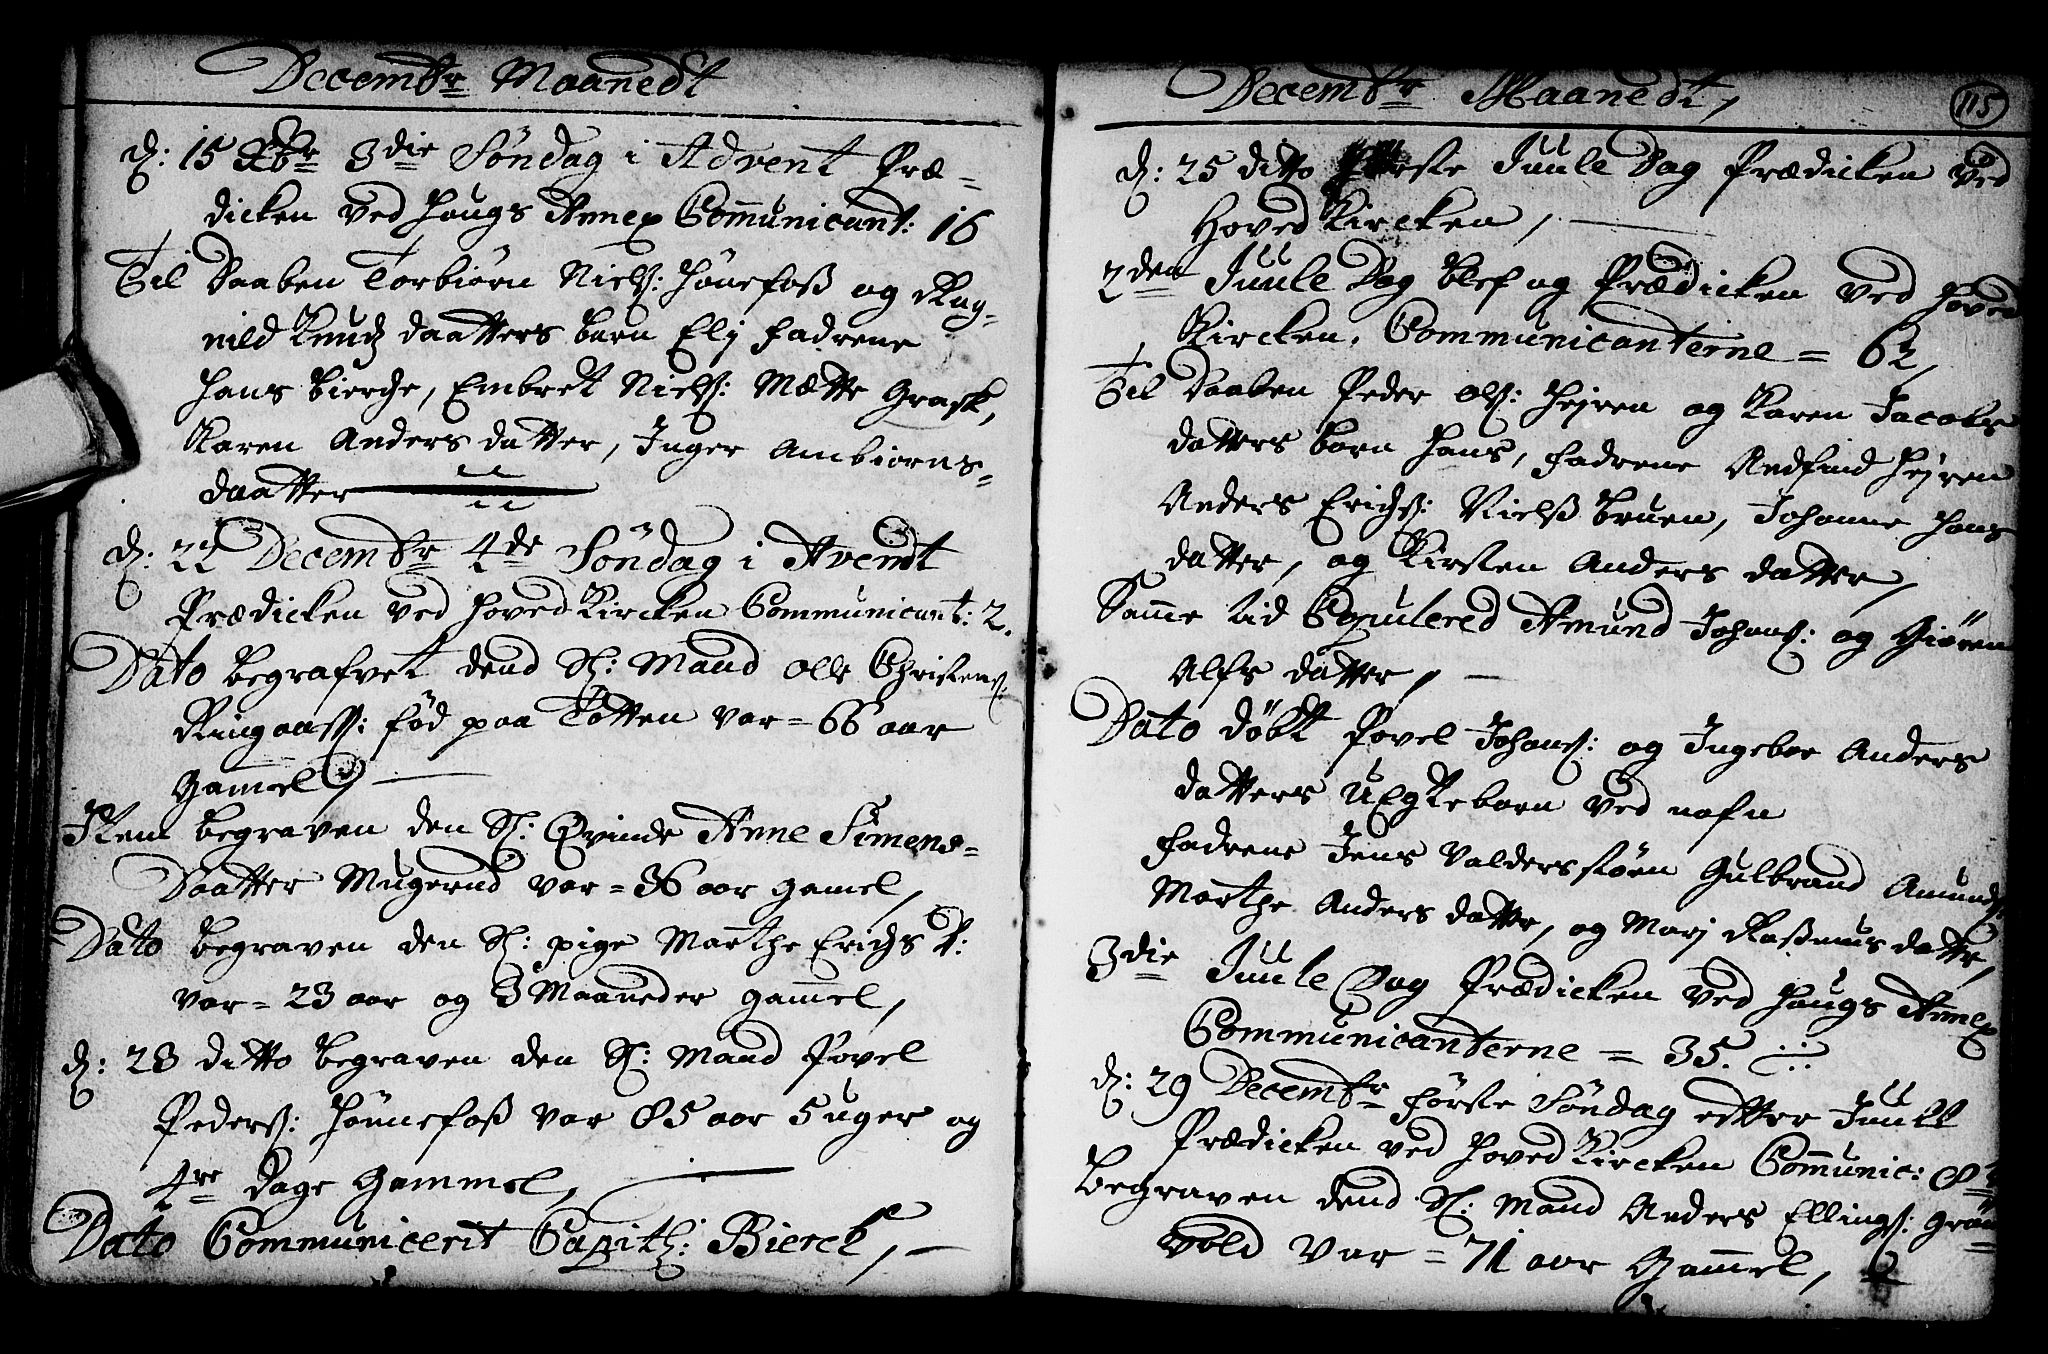 Decembr Maanedt
d: 15 Xbr 3die Söndag i Advent Præ=
dicken ved Hougs Annex Com̄unicant: 16
Til Daaben Torbiörn Niels: Hönefoß og Rag=
nild Knudz daatters barn Elj Fadrene
Hans Bierche, Embret Niels: Mætte Grask,
Karen Anders datter, Inger Ambiörns=
daatter
d: 22 Decembr 4de Söndag i Avendt
Prædicken ved Hoved Kircken Communicant: 2.
Dato begrafvet dend Sl: Mand Olle Christens:
Ringaas: föd paa Totten var = 66 aar
Gam̄el
Item begraven den Sl: Qvinde Anne Simens=
Daatter Mugerud var = 36 aar gamel,
Dato begraven den Sl: pige Marthe Erichs D:
var = 23 aar og 3 Maaneder gam̄el,
d: 23 ditto begraven den Sl: Mand Povel
Peders: Hönnefoß var 85 aar 5 uger og
4re dage Gammel,
Dato Communicerit Capith: Bierch,
Decembr Maanedt,
115
d: 25 ditto förste Juule Dag Prædicken ved
Hoved Kircken,
2den Juule Dag blef og Prædicken ved Hoved
Kircken. Communicanterne = 62,
Til Daaben Peder Ols: Hejren og Karen Jacobs
datters barn Hans, Fadrene Aedfind Hejren
Anders Erichs: Nielß Bruen, Johanne Hans
datter, og Kirsten Anders datter,
Sam̄e tid Copulered Amund Johans: og Giören
Alfs datter,
Dato döbt Povel Johans: og Ingebor Anders
datters Uægtebarn ved nafn
Fadrene Jens Valdersköen Gulbrand Amunds:
Marthe Anders datter, og Marj Raßmus datter,
3die Juule Dag Prædicken ved Hougs Annex
Communicanterne = 35.
d: 29 Decembr förste Söndag efter Juull
Prædicken ved Hoved Kircken Com̄unic:
Begraven dend Sl: Mand Anders Ellings: Grön=
vold var = 71 aar Gam̄el,